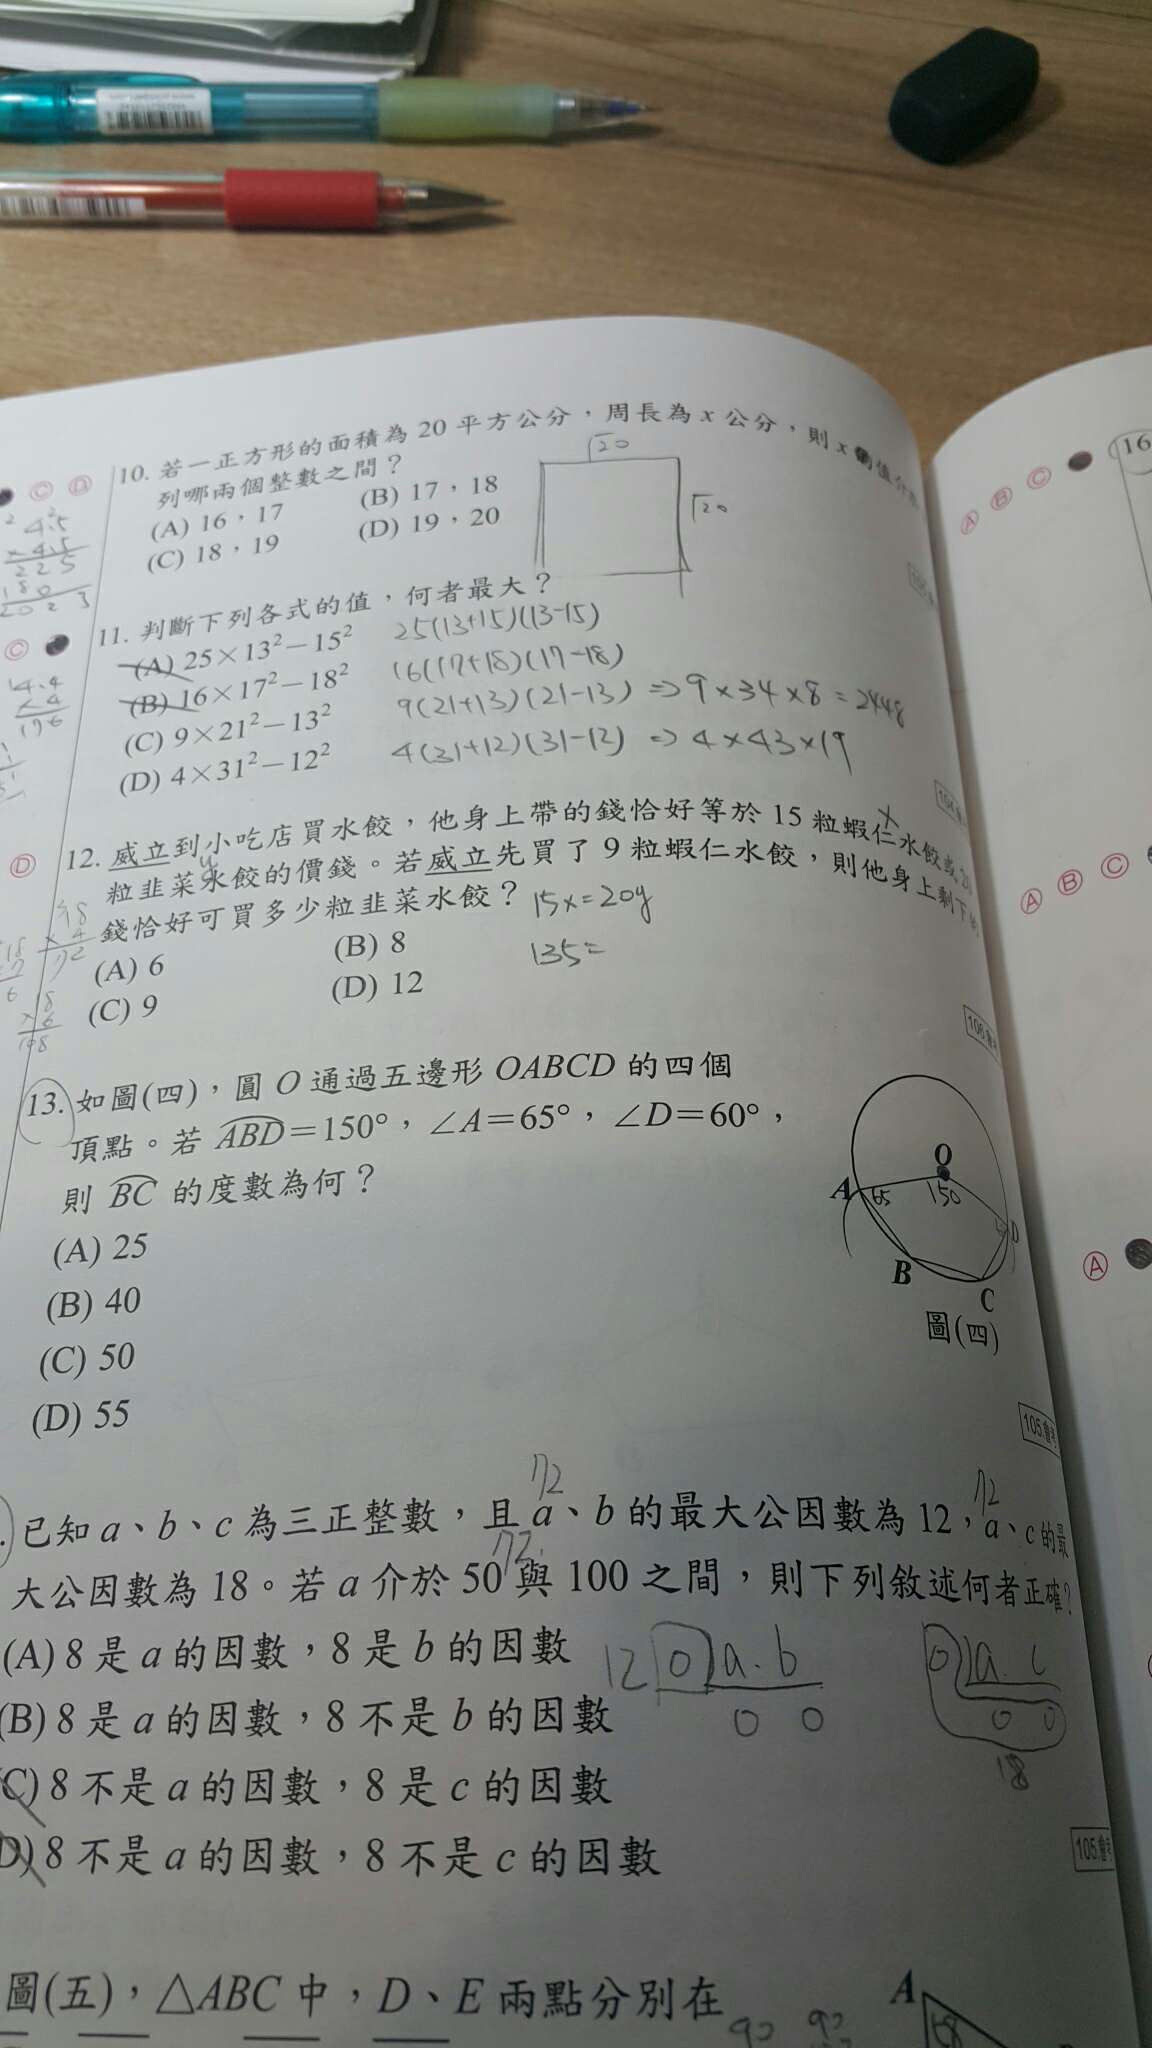 10. 若一正方形的面積為 20 平方公分，周長為 x 公分，則 x 的值介於
列哪兩個整數之間？
(A) 16，17 (B) 17，18
(C) 18，19 (D) 19，20
√20
√20
11. 判斷下列各式的值，何者最大？
(A) 25×13²－15² 25(13+15)(13-15)
(B) 16×17²－18² 16(17+18)(17-18)
(C) 9×21²－13² 9(21+13)(21-13) => 9×34×8=2448
(D) 4×31²－12² 4(31+12)(31-12) => 4×43×19
12. 威立到小吃店買水餃，他身上帶的錢恰好等於 15 粒蝦仁水餃或 20
粒韭菜水餃的價錢。若威立先買了 9 粒蝦仁水餃，則他身上剩下的
錢恰好可買多少粒韭菜水餃？ 15x=20y
135=
(A) 6 (B) 8
(C) 9 (D) 12
106.會考
13. 如圖(四)，圓 O 通過五邊形 OABCD 的四個
頂點。若 ABD＝150°，∠A＝65°，∠D＝60°，
則 BC 的度數為何？
(A) 25
(B) 40
(C) 50
(D) 55
O
A 65 150 D
B
C
圖(四)
105.會考
72 72
已知 a、b、c 為三正整數，且 a、b 的最大公因數為 12，a、c 的最
72
大公因數為 18。若 a 介於 50 與 100 之間，則下列敘述何者正確？
(A) 8 是 a 的因數，8 是 b 的因數
(B) 8 是 a 的因數，8 不是 b 的因數
(C) 8 不是 a 的因數，8 是 c 的因數
(D) 8 不是 a 的因數，8 不是 c 的因數
12 0 a.b
0 0
0 a. c
0 0
18
105.會考
圖(五)，△ABC 中，D、E 兩點分別在
A
C D
4.5
×4.5
225
180
C
14.4
D
18
×4
72
18
×6
108
16
A B C
A B C
A